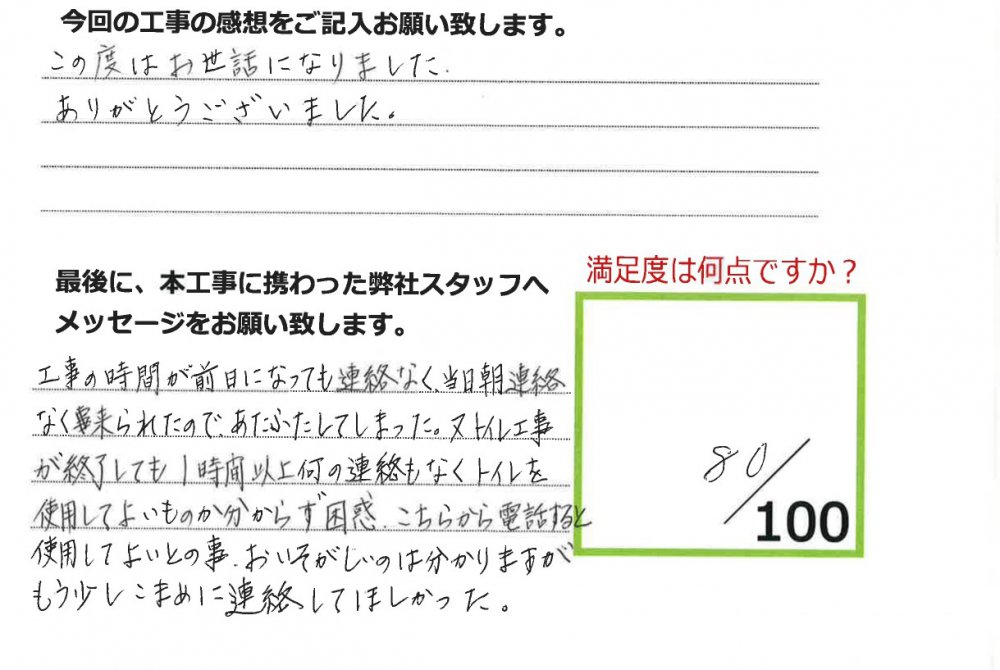 今回の工事の感想をご記入お願い致します。
この度はお世話になりました.
ありがとうございました。
最後に、本工事に携わった弊社スタッフへ
メッセージをお願い致します。
満足度は何点ですか？
80/100
工事の時間が前日になっても連絡なく、当日朝連絡
なく来られたので、あたふたしてしまった。又トイレ工事
が終了しても1時間以上何の連絡もなくトイレを
使用してよいものか分からず困惑.こちらから電話すると
使用してよいとの事.おいそがしいのは分かりますが
もう少しこまめに連絡してほしかった。